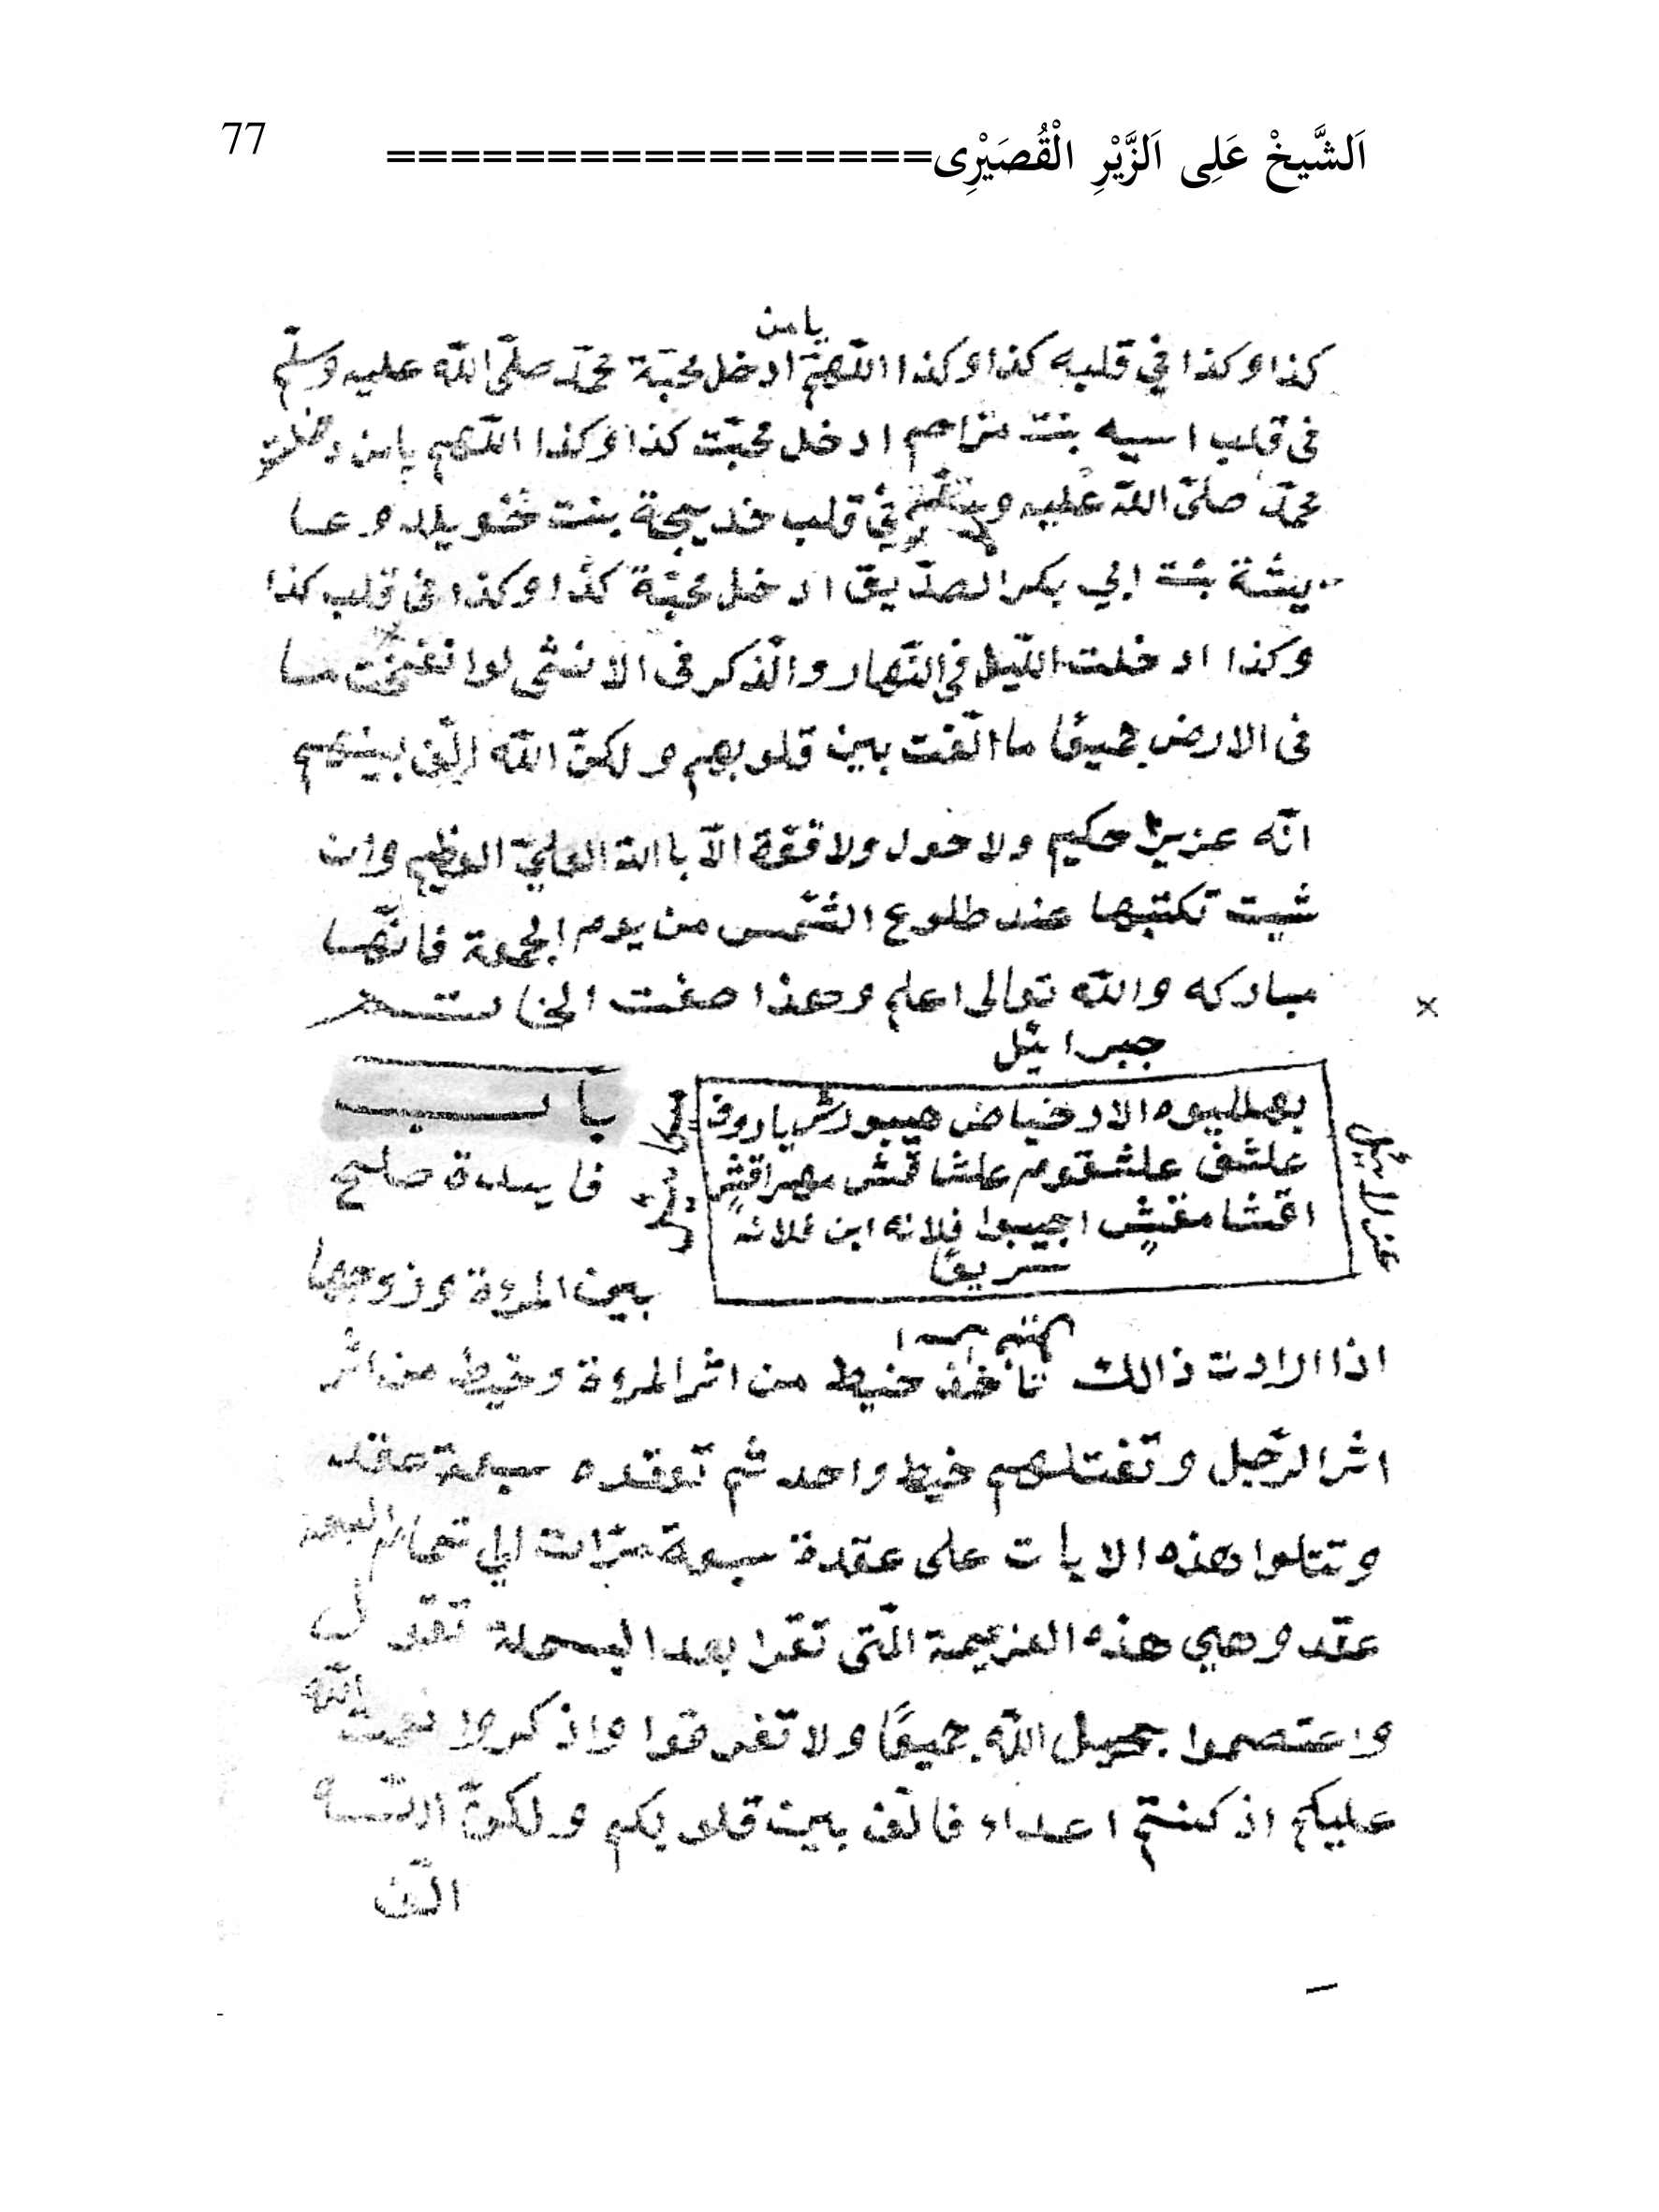 اَلشَّيخْ عَلِى اَلزَّيْرِ الْقُصَيْرِى================= 77
يا من
كذا وكذا في قلبه كذا وكذا اللّهمّ ادخل محبّة محمّد صلّى اللّه عليه وسلّم
فى قلب اسيه بنت مزاحم ادخل محبّت كذا وكذا اللّهم يا من دخلت
محمّد صلّى اللّه عليه في قلب خديجة بنت خويلد و عا
يشة بنت ابي بكر الصدّيق ادخل محبّة كذا وكذا فى قلب كذا
وكذا ادخلت اللّيل في النّهار والذّكر فى الانثى لوا نفقت ما
فى الارض جميعًا ما الّفت بين قلوبهم و لكنّ اللّه الّف بينهم
انّه عزيز حكيم ولا حول ولا قوّة الاّ باالله العليّ العظيم وان
شيت تكتبها عند طلوع الشّمس من يوم الجمعة فانّها
مباركه واللّه تعالى اعلم وهذا صفت الخاتم
جبرائيل
بهلليوه الاد خياض هيبورش ياروف
علشف علشقوم علشاقش مهراقشٍ
اقشا مقشٍ اجيبوا فلانه ابن فلانه
سريعًا
باب
فايدة صلح
بين المرءة وزوجها
اذا ارادت ذالك تأخذ خيط من اثر المرءة وخيط من اثر
اثر الرّجل وتفتلهم خيط واحد ثم تعقده سبعة عقد
وتتلوا هذه الايات على عقدة سبعة مرّات الي تمام السبعة
عقد وهي هذه العزيمة الّتى تقرا بعد البسملة تقول
واعتصموا بحبل اللّه جميعًا ولا تفرقوا واذكروا نعمت اللّه
عليكم اذ كنتم اعداء فالّف بين قلوبكم ولكنّ اللّه
الّف